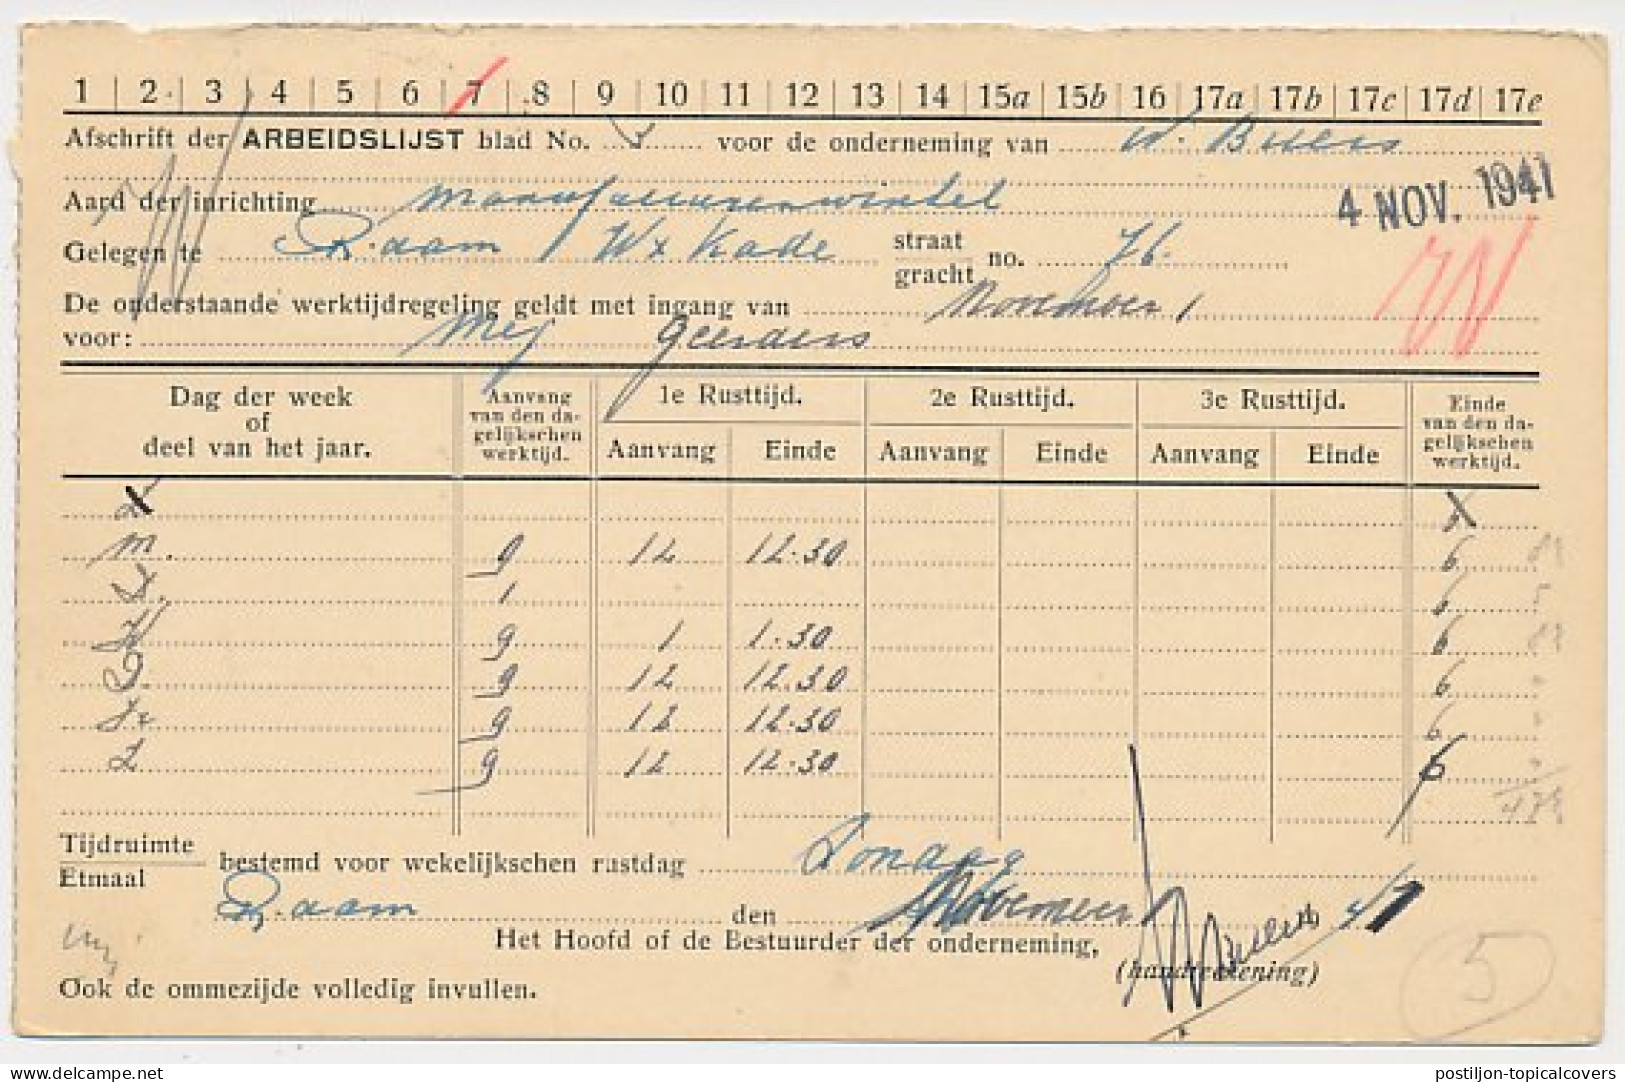 1 | 2 | 3 | 4 | 5 | 6 | 7 | 8 | 9 | 10 | 11 | 12 | 13 | 14 | 15a | 15b | 16 | 17a | 17b | 17c | 17d | 17e
Afschrift der ARBEIDSLIJST blad No. 3 voor de onderneming van W. Buers
4 NOV. 1941
Aard der inrichting Manufacturenwinkel
Gelegen te R.dam / Wx Kade straat gracht no. 76.
De onderstaande werktijdregeling geldt met ingang van November 1
voor: Mej Geerders
Dag der week of deel van het jaar.
Aanvang van den dagelijkschen werktijd.
1e Rusttijd. 2e Rusttijd. 3e Rusttijd.
Einde van den dagelijkschen werktijd.
Aanvang Einde Aanvang Einde Aanvang Einde
M. 9 12 12.30 6
1 6
W 9 1 1.30 6
D. 9 12 12.30 6
Vr 9 12 12.30 6
Z 9 12 12.30 6
Tijdruimte
Etmaal
bestemd voor wekelijkschen rustdag Zondag
R.dam den November 41
Het Hoofd of de Bestuurder der onderneming,
(handteekening)
Ook de ommezijde volledig invullen.
5
www.delcampe.net
postiljon-topicalcovers